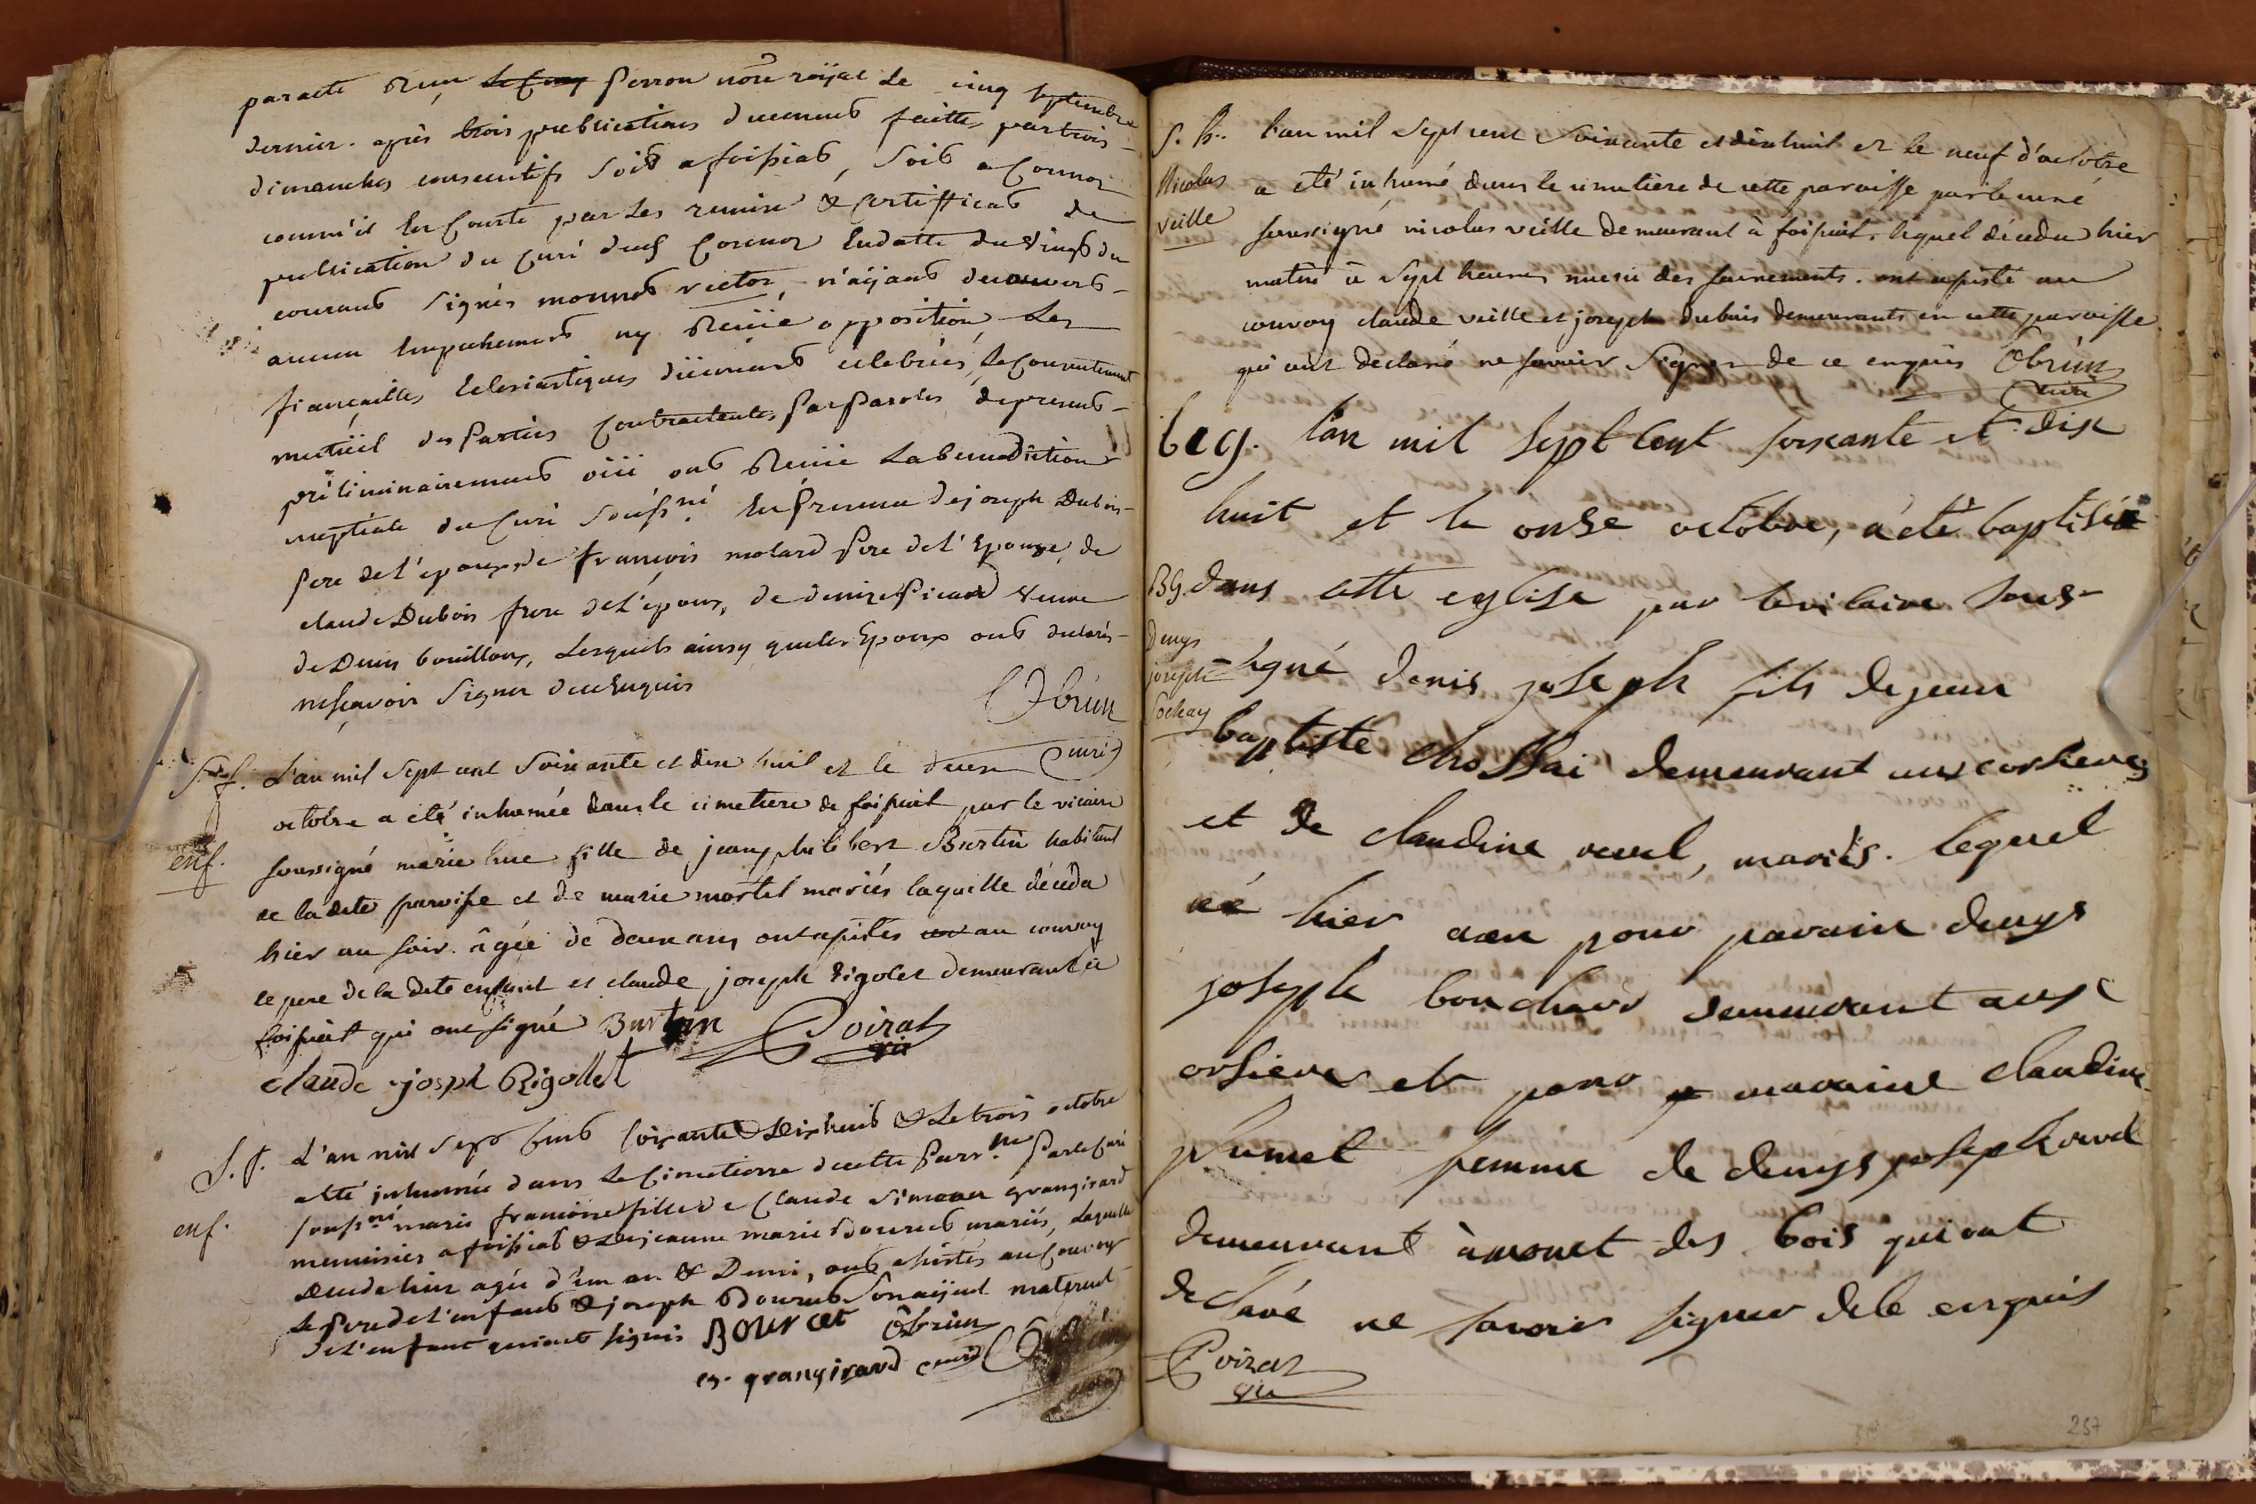 par acte Reçu Perron no.re roÿal Le cinq septembre
dernier. après trois publications duement faittes par trois
dimanches consecutifs soit a foissiat, soit a Cormoz
comm'il En Conste par Les remise & Certifficat de
publication du Curé dud Cormoz En datte du vingt du
courant Signés monnet victor, n'aÿant decouvert
aucun Empechement ny Reçüe opposition Les
fiançailles Eclesiastiques düement celebrées, Le Consentement
mutüel des Parties Contractantes Par Paroles de present
préliminairement oüi ont Reçüe La benediction
nuptiale du Curé souss.né En Presence de joseph Dubois
Pere de l'epoux, de françois molard Pere de l'Epouse, de
claude Dubois frere de L'époux, de denise Picard veuve
de Denis bouillon, Lesquels ainsy que les Epoux ont declarés
ne sçavoir Signer de ce Enquis
Obrün
Curé
S. f. L'an mil sept cent soixante et dix huit et le deux
octobre a eté inhumée dans le cimetiere de foissiat par le vicaire
enf. soussigné marie fille de jean philibert Burtin habitant
de la dite paroisse et de marie martel mariés laquelle déceda
hier au soir. âgée de deux ans ont assistés au convoy
le pere de la dite enfant et claude joseph rigolet demeurant à
foissiat qui ont signé Burtin Poirat
vic
claude joseph Rigollet
S. f. L'an mil sept Cent soixante Dix huit & Le trois octobre
a été inhumée dans Le Cimetierre de cette Parr.sse Par le Curé
enf. souss.né marie françoise fille de Claude Simeon grangirard
menuisier a foissiat & de jeanne marie Bourcet mariés, Laquelle
deceda hier agée d'un an & Demi, ont assistés au Convoy
Le Pere de L'enfant & joseph Bourcet son aÿeul maternel
de L'enfant qui ont signés Bourcet Obrün
cs. grangirard curé
S. h. L'an mil sept cent soixante et dix huit et le neuf d'octobre
Nicolas a eté inhumé dans le cimetiere de cette paroisse par le curé
veille soussigné nicolas veille demeurant à foissiat, lequel déceda hier
matin à sept heures muni des sacrements. ont assisté au
convoy claude veille et joseph dubois demeurants en cette paroisse
qui ont declaré ne savoir Signer de ce enquis Obrün
Curé
beg. L'an mil sept Cent soixante et dix
huit et le onze octobre, a été baptisée
BG. dans cette eglise par le vicaire sous-
Denys joseph Sochay
=signé denis joseph fils de jean
baptiste chossai demeurant aux orsieres
et de claudine revel, mariés. lequel
né hier a eu pour parain denys
joseph bouchard demeurant aux
orsieres et pour maraine claudine
plumet femme de denys joseph revel
demeurant à monet des bois qui ont
declaré ne savoir signer de le enquis
Poirat
vic
257